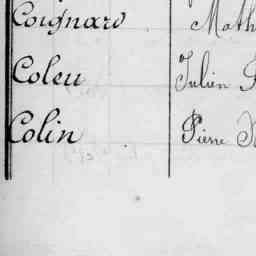 Coignard Math
Coleu Julien
Colin Pierre